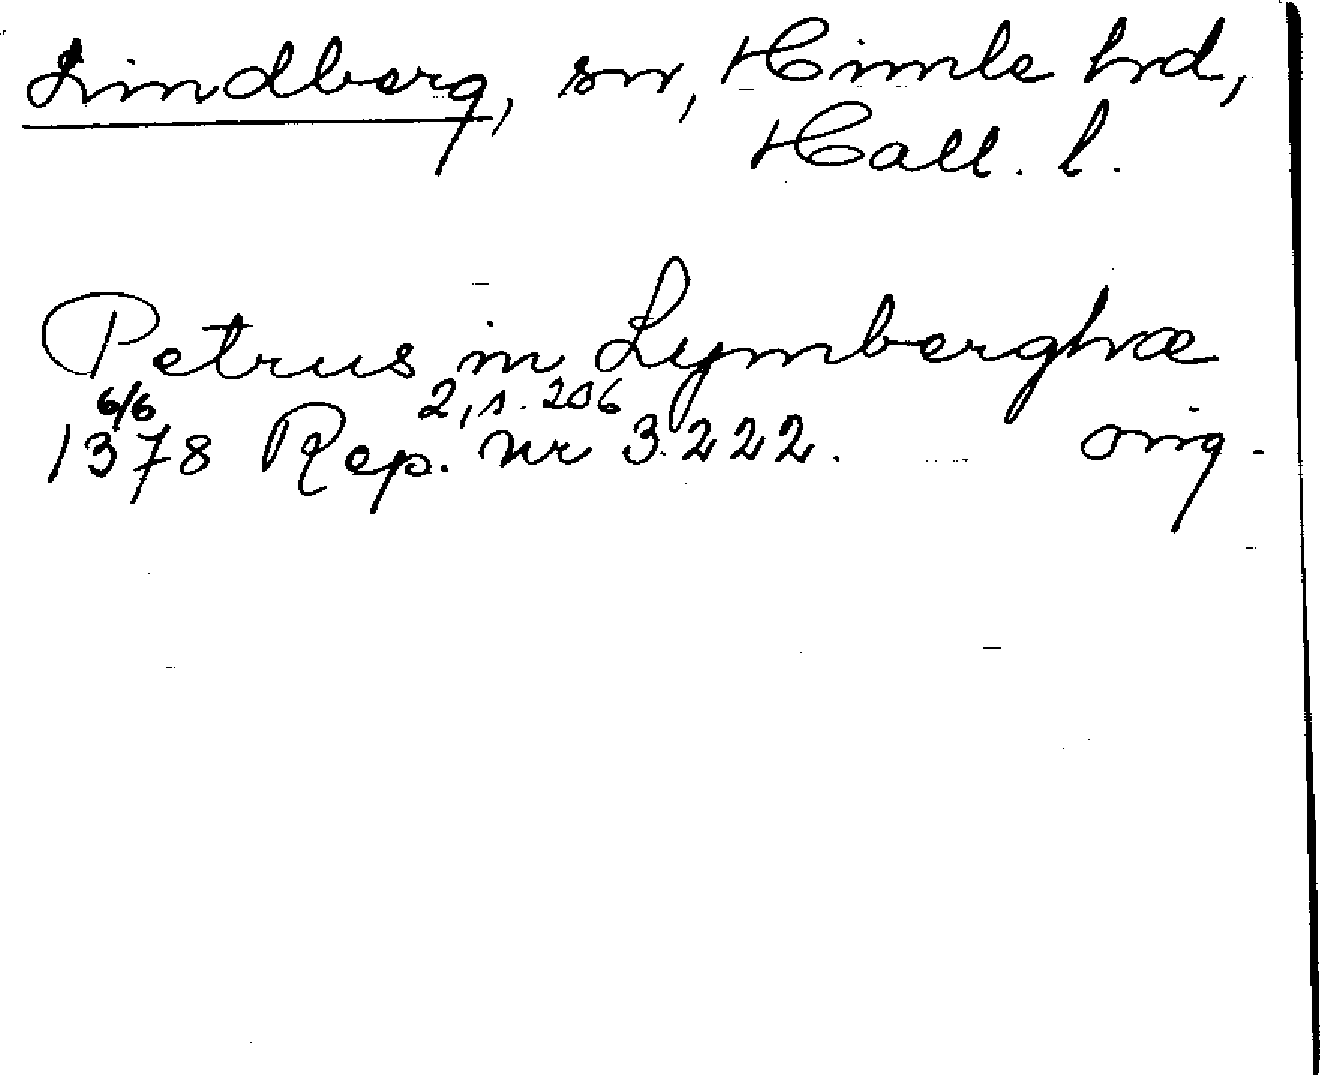 Lindberg, sn, Himle hd,
Hall. l.
Petrus in Lymberghæ
6/6 2, s. 206
1378 Rep. nr 3222. orig.